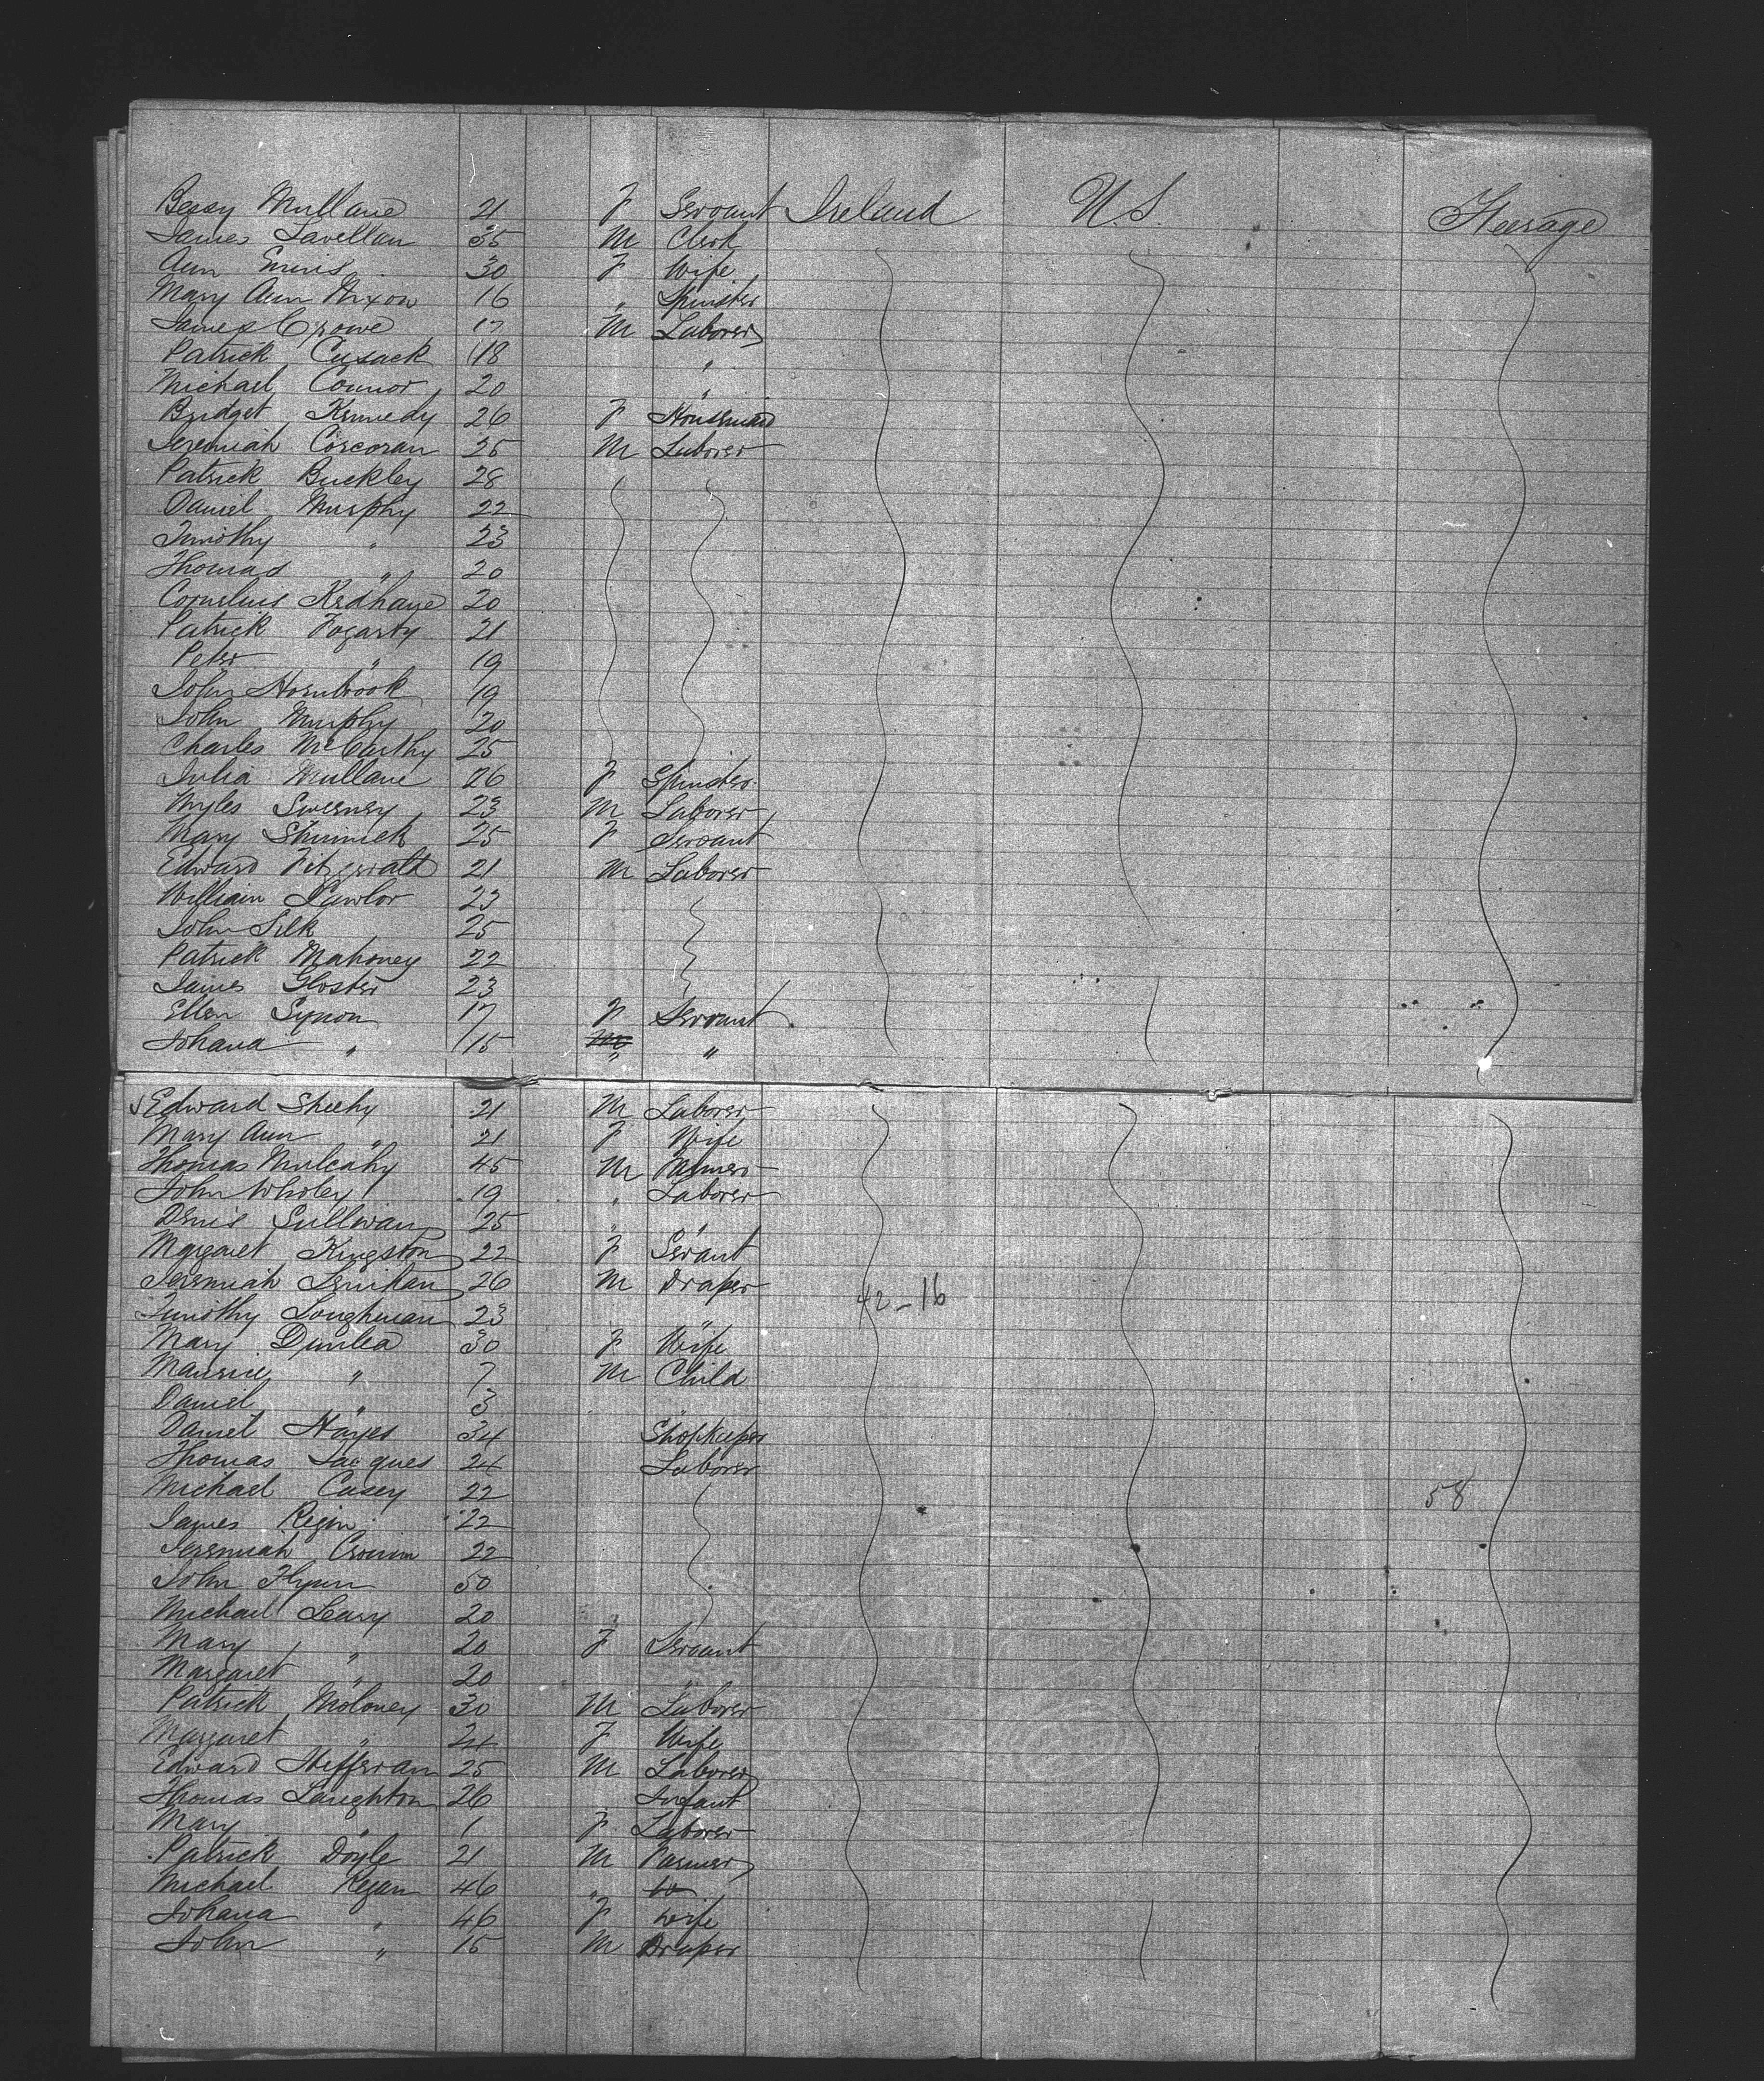 Bessy Mullane 21 F Servant Ireland U.S. Steerage
James Lavellan 35 M Clerk
Ann Ennis 30 F Wife
Mary Ann Nixon 16 " Spinster
James Crowe 17 M Laborer
Patrick Cusack 18 "
Michael Connor 20 "
Bridget Kennedy 26 F Housemaid
Jeremiah Corcoran 25 M Laborer
Patrick Buckley 28
Daniel Murphy 22
Timothy " 23
Thomas " 20
Cornelius 20
Patrick Fogarty 21
Peter " 19
John Hornbrook 19
John Murphy 20
Charles McCarthy 25
Julia Mullane 26 F Spinster
Myles Sweeney 23 M Laborer
Mary Shinnick 25 F Servant
Edward Fitzgerald 21 M Laborer
William Lawlor 23
John Silk 25
Patrick Mahoney 22
James Gloster 23
Ellen Synon 17 F Servant
Johana " 15 " "
Edward Sheehy 21 M Laborer
Mary Ann " 21 F Wife
Thomas Mulcahy 45 M Farmer
John Wholey 19 " Laborer
Denis Sullivan 25 " "
Margaret Kingston 22 F Servant
Jeremiah Lenihan 26 M Draper
42-16
Timothy Loughman 23 "
Mary Dunlea 30 F Wife
Maurice " 7 M Child
Daniel " 3
Daniel Hayes 34 Shopkeeper
Thomas Jacques 24 Laborer
Michael Casey 22
58
James Regin 22
Jeremiah Cronin 22
John Flynn 50
Michael Leary 20
Mary " 20 F Servant
Margaret " 20
Patrick Moloney 30 M Laborer
Margaret " 24 F Wife
Edward Heffernan 25 M Laborer
Thomas Laughton 26 Infant
Mary " 1 F Laborer
Patrick Doyle 21 M Farmer
Michael Regan 46 "
Johana " 46 F Wife
John " 15 M Draper